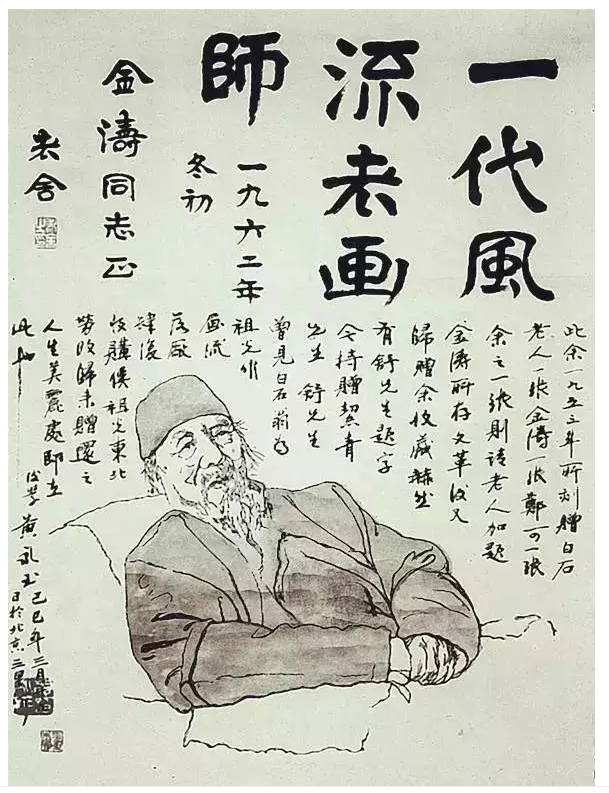 一代風
流老画
師
一九六二年
冬初
金濤同志正
老舍
此余一九五三年所刻贈白石
老人一張金濤一張鄭可一張
余之一張則請老人加題
金濤所存文革後又
歸贈余收藏赫然
有舒先生題字
今持贈絜青
先生 舒先生
曾見白石翁為
祖光作
画流
落廠
肆後
收購俟祖光東北
勞改歸来贈還之
人生美麗處即在
此也
後學黄永玉己巳年三月
日於北京三里